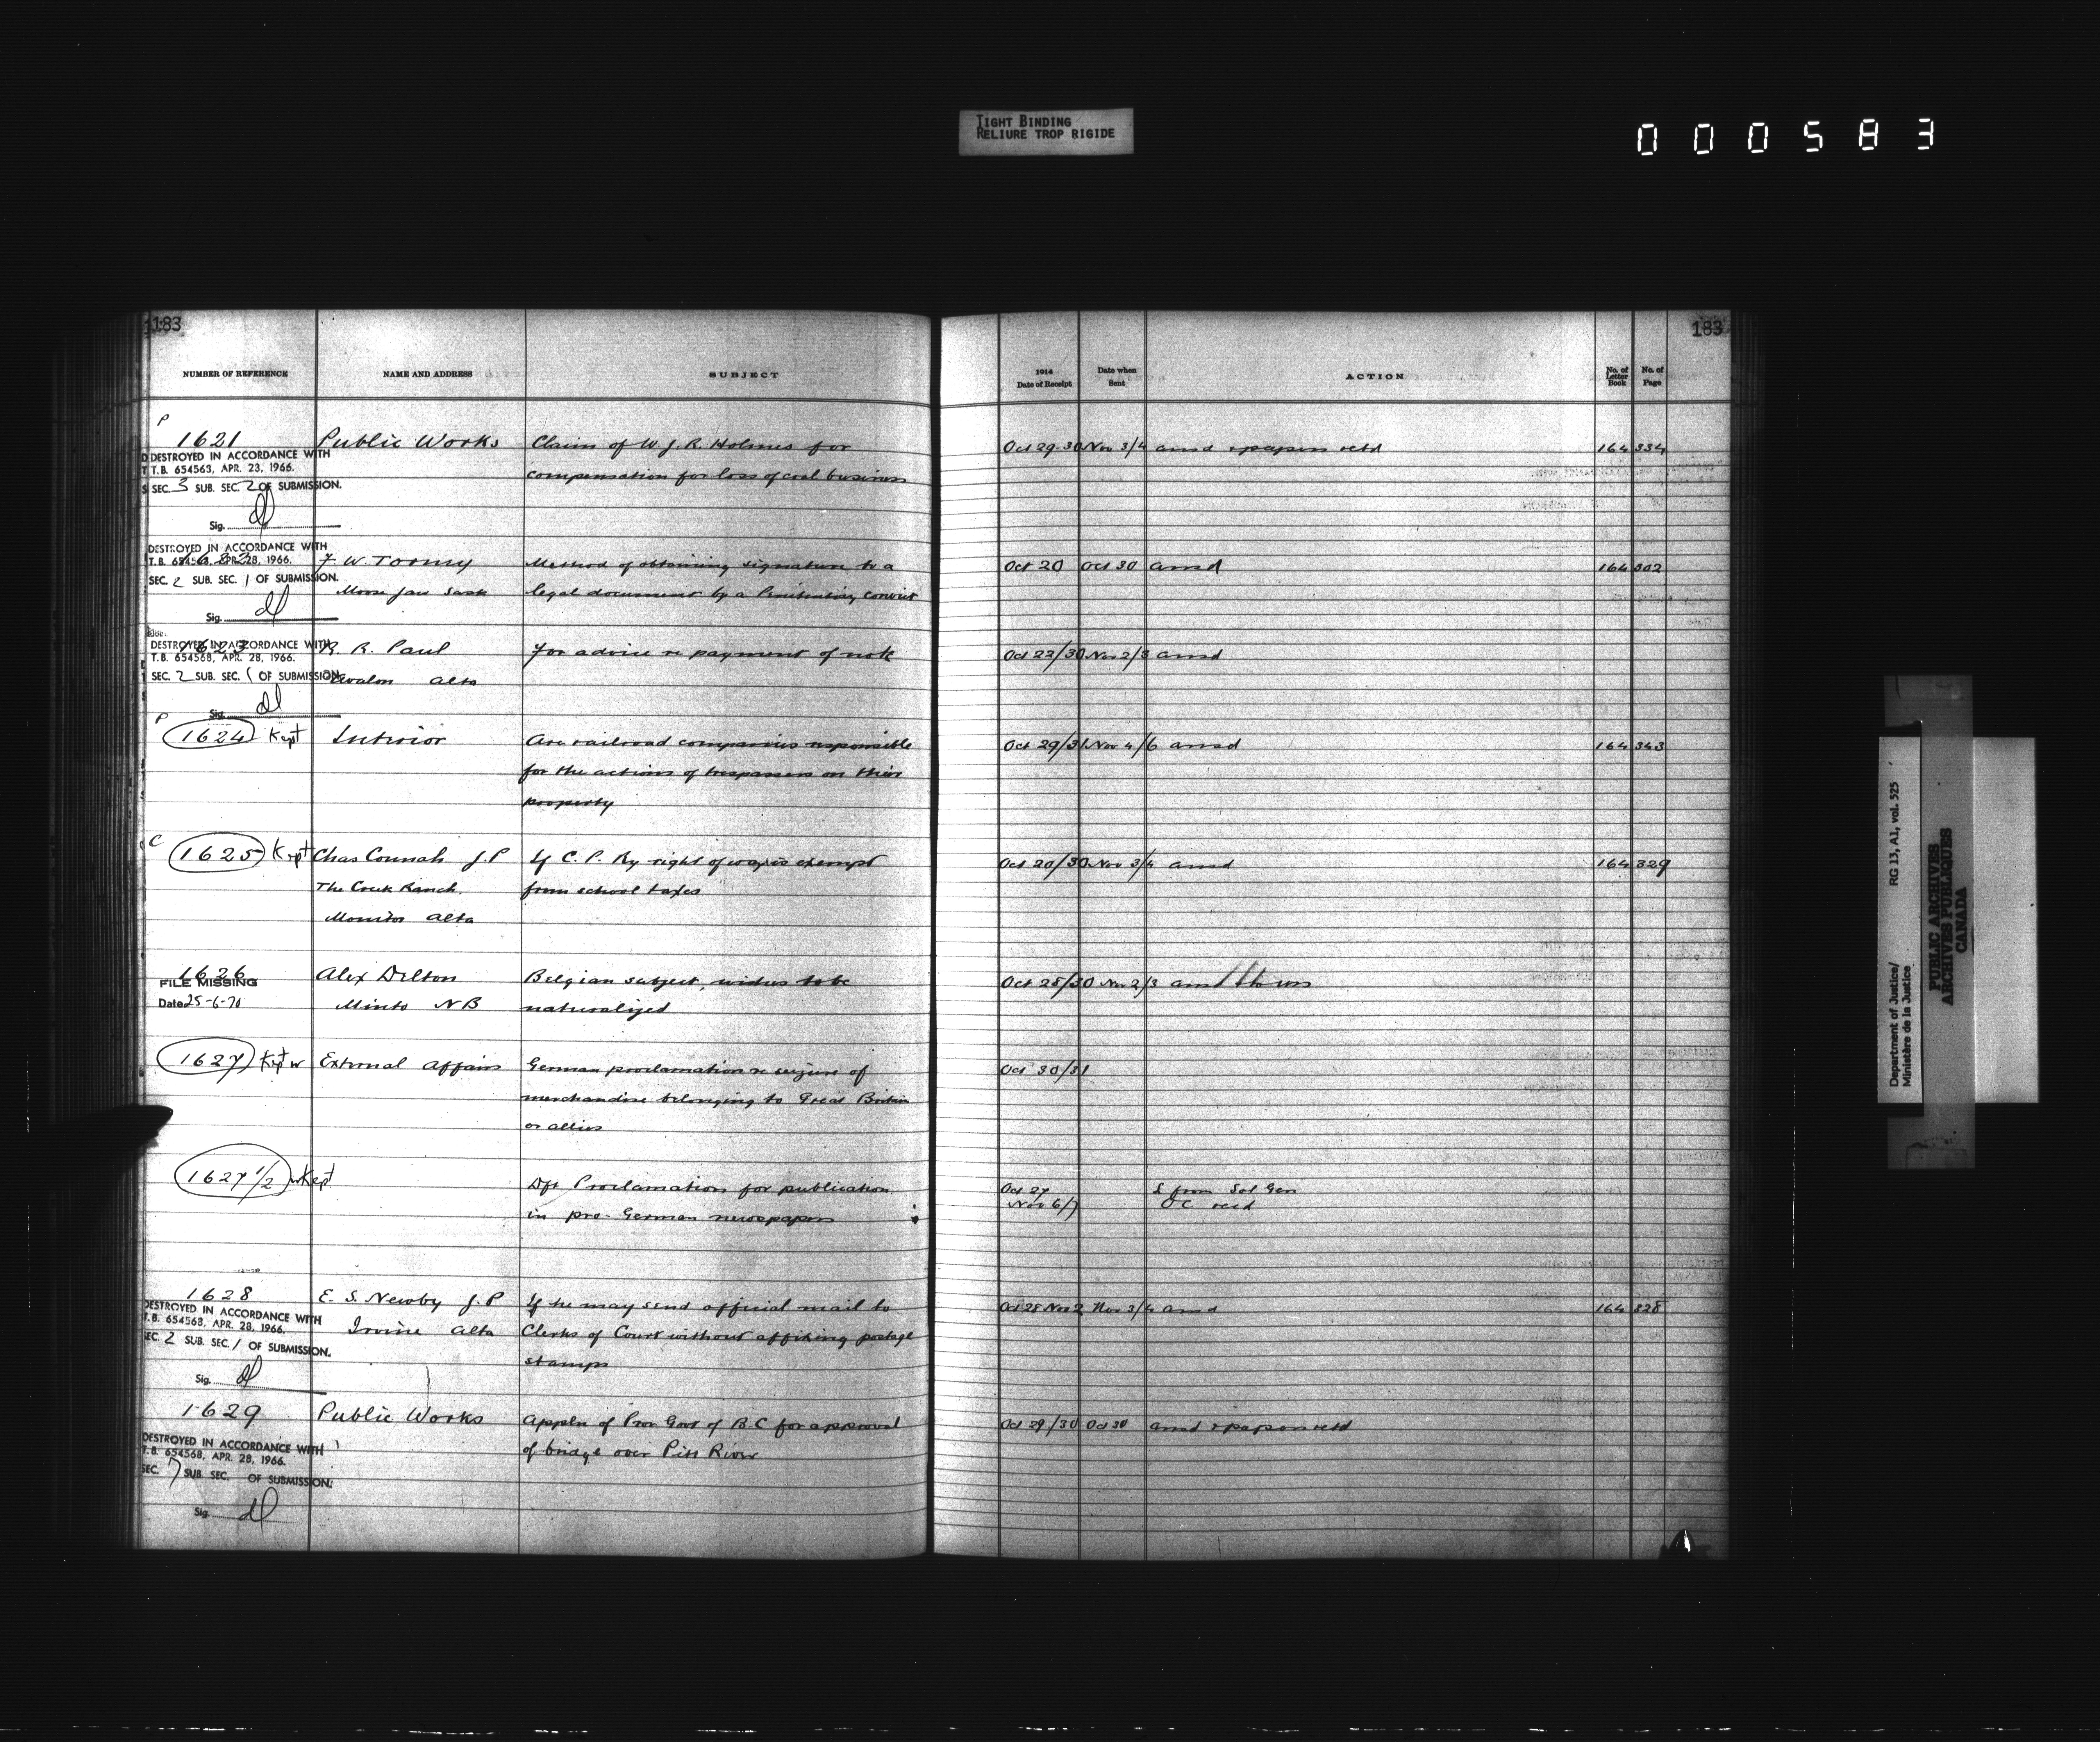 TIGHT BINDING
RELIURE TROP RIGIDE
000583
183
183
NUMBER OF REFERENCE NAME AND ADDRESS SUBJECT 1914 Date of Receipt Date when Sent ACTION No. of Letter Book No. of Page
P
1621 Public Works Claim of W. J. R. Holmes for Oct 29.30 Nov 3/4 ansd & papers retd 164 334
DESTROYED IN ACCORDANCE WITH
T.B. 654563, APR. 23, 1966. compensation for loss of coal business
SEC. 3 SUB. SEC. 2 OF SUBMISSION.
Sig.
DESTROYED IN ACCORDANCE WITH
T.B. 654568, APR. 28, 1966. W. Toomy Method of obtaining signature to a Oct 20 Oct 30 ansd 164 302
SEC. 2 SUB. SEC. 1 OF SUBMISSION.
Moose Jaw Sask legal document by a Penitentiary convict
Sig.
DESTROYED IN ACCORDANCE WITH
1623 R. R. Paul For advice re payment of note Oct 22/30 Nov 2/3 ansd
T.B. 654568, APR. 28, 1966.
SEC. 2 SUB. SEC. 1 OF SUBMISSION. Avalon Alta
Sig.
P
1624 Kept Interior Are railroad companies responsible Oct 29/31 Nov 4/6 ansd 164 343
for the actions of trespassers on their
property
C
1625 Kept Chas Connah J.P If C. P. Ry right of way is exempt Oct 20/30 Nov 3/4 ansd 164 329
The Creek Ranch from school taxes
Monitor Alta
1626 Alex Delton Belgian subject, wishes to be Oct 28/30 Nov 2/3 ansd
FILE MISSING
Date 25-6-70 Minto N B naturalized
1627 Kept External Affairs German proclamation re seizure of Oct 30/31
merchandise belonging to Great Britain
or allies
1627 1/2 Kept Dft Proclamation for publication Oct 27 L from Sol Gen
in pro-German newspapers Nov 6/7 O C recd
1628 E. S. Newby J.P If he may send official mail to Oct 28 Nov 2 Nov 3/4 ansd 164 328
DESTROYED IN ACCORDANCE WITH
T.B. 654568, APR. 28, 1966. Irvine Alta Clerks of Court without affixing postage
SEC. 2 SUB. SEC. 1 OF SUBMISSION. stamps
Sig.
1629 Public Works Appln of Prov Govt of B C for approval Oct 29/30 Oct 30 ansd & papers retd
DESTROYED IN ACCORDANCE WITH
T.B. 654568, APR. 28, 1966. of bridge over Pitt River
SEC. 7 SUB. SEC. OF SUBMISSION.
Sig.
Department of Justice/
Ministère de la Justice
RG 13, A1, vol. 525
PUBLIC ARCHIVES
ARCHIVES PUBLIQUES
CANADA